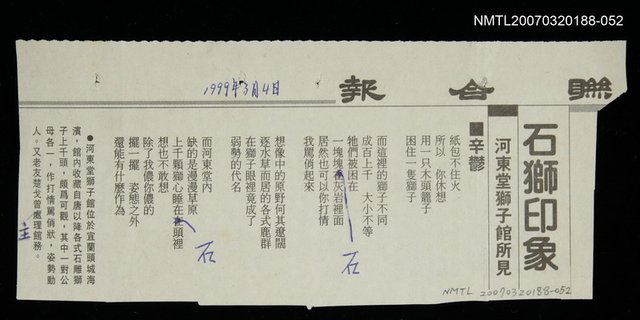 NMTL20070320188-052
1999年3月4日
聯合報
石獅印象
河東堂獅子館所見
■辛鬱
紙包不住火
所以 你休想
用一只木頭籠子
困住一隻獅子
而這裡的獅子不同
成百上千 大小不等
牠們被困在
一塊塊花灰岩裡面
居然也可以你打情
我罵俏起來
石
想像中的原野何其遼闊
逐水草而居的各式鹿群
在獅子眼裡竟成了
弱勢的代名
而河東堂內
缺的是漫漫草原
上千顆獅心睡在頭裡
石
想也不敢想
除了我儂你儂的
擺一擺 姿態之外
還能有什麼作為
●河東堂獅子館位於宜蘭頭城海
濱，館內收藏自唐以降各式石雕獅
子上千頭，頗爲可觀，其中一對公
母各一，作打情罵俏狀，姿勢動
人。又老友楚戈曾處理館務。
主
NMTL 20070320188-052